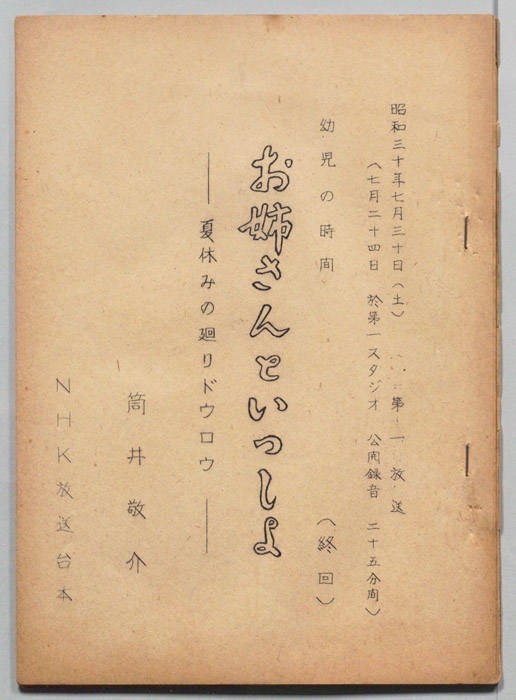 昭和三十年七月三十日（土） 第一放送
（七月二十四日 於第一スタジオ 公開録音 二十五分間）
幼児の時間
お姉さんといっしよ
（終回）
――夏休みの廻りドウロウ――
筒井敬介
NHK放送台本